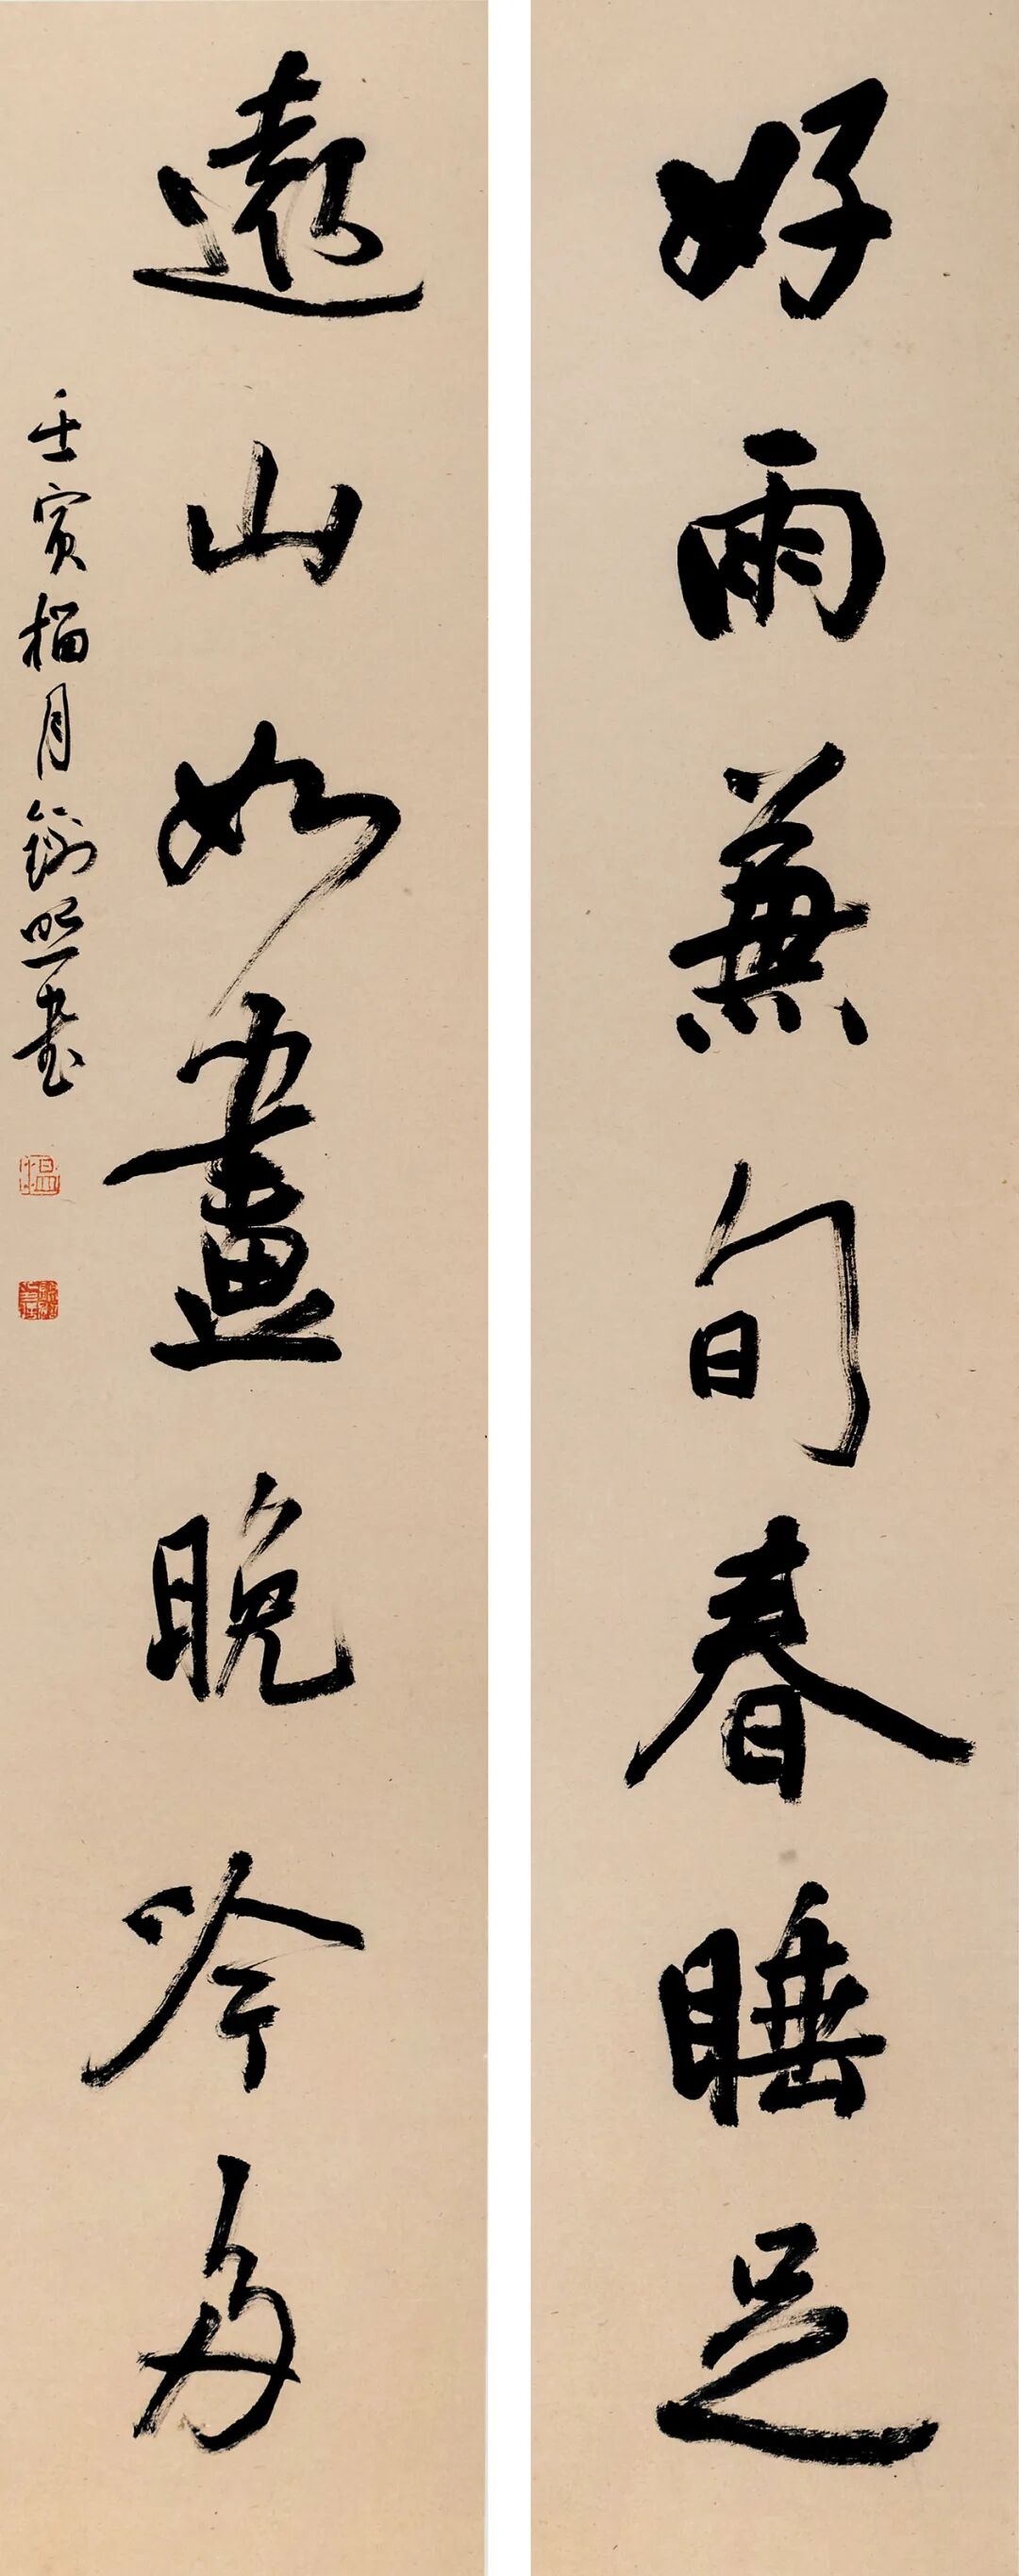 好雨兼旬春睡足
遠山如畫晚吟多
壬寅榴月劍熙書